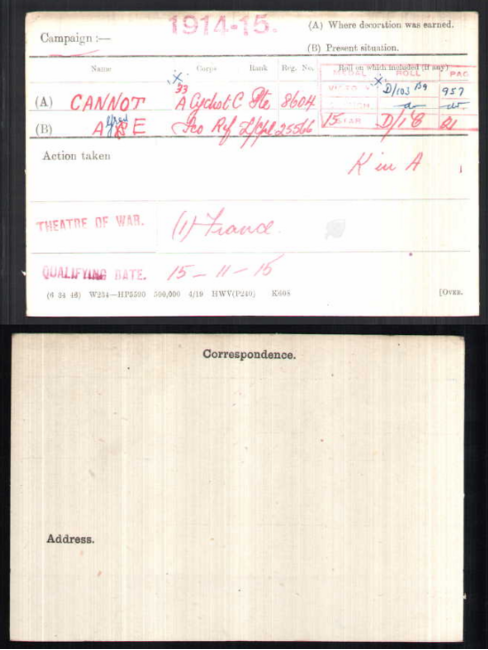 1914-15.
(A) Where decoration was earned.
Campaign :—
(B) Present situation.
Name Corps Rank Reg. No. Roll on which included (if any)
MEDAL ROLL PAGE
33
(A) CANNOT A Cyclist C Pte. 8604 VICTORY D/103 B9 957
(B) A E Sco Rif L/Cpl 25566 15 STAR D/1 8
Action taken K in A
THEATRE OF WAR. (1) France.
QUALIFYING DATE. 15 – 11 – 15
(6 34 46) W234—HP5590 500,000 4/19 HWV(P240) K608 [OVER.
Correspondence.
Address.